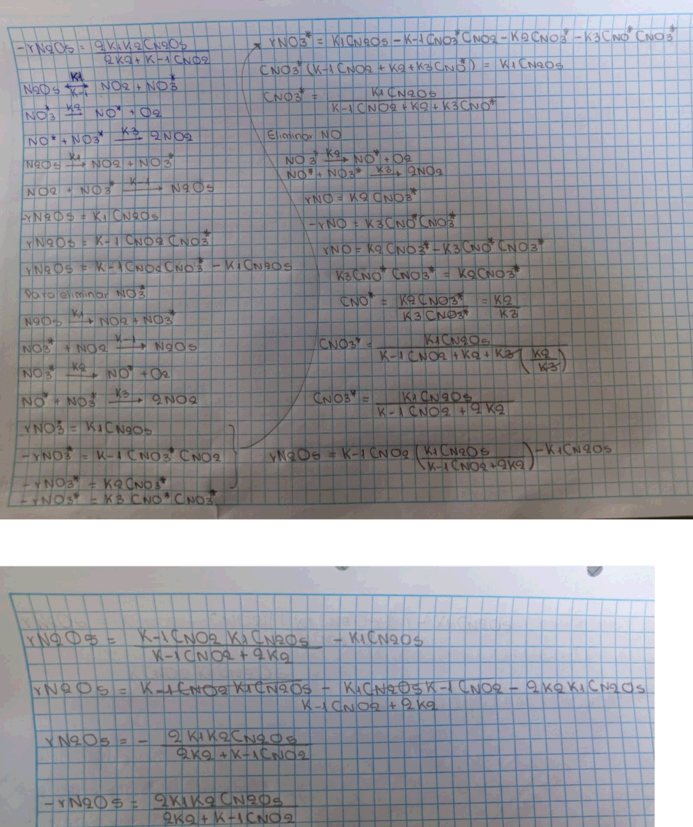 -rN2O5 = 2K1K2CN2O5 / 2K2 + K-1CNO2
N2O5 ⇄ NO2 + NO3* K1 K-1
NO3* →K2 NO* + O2
NO* + NO3* →K3 2NO2
N2O5 →K1 NO2 + NO3*
NO2 + NO3* →K-1 N2O5
-rN2O5 = K1CN2O5
rN2O5 = K-1CNO2CNO3*
rN2O5 = K-1CNO2CNO3* - K1CN2O5
Para eliminar NO3*
N2O5 →K1 NO2 + NO3*
NO3* + NO2 →K-1 N2O5
NO3* →K2 NO* + O2
NO* + NO3* →K3 2NO2
rNO3* = K1CN2O5
-rNO3* = K-1CNO3*CNO2
-rNO3* = K2CNO3*
-rNO3* = K3CNO*CNO3*
rNO3* = K1CN2O5 - K-1CNO3*CNO2 - K2CNO3* - K3CNO*CNO3*
CNO3*(K-1CNO2 + K2 + K3CNO*) = K1CN2O5
CNO3* = K1CN2O5 / K-1CNO2 + K2 + K3CNO*
Eliminar NO
NO3* →K2 NO* + O2
NO* + NO3* →K3 2NO2
rNO = K2CNO3*
-rNO = K3CNO*CNO3*
rNO = K2CNO3* - K3CNO*CNO3*
K3CNO*CNO3* = K2CNO3*
CNO* = K2CNO3* / K3CNO3* = K2 / K3
CNO3* = K1CN2O5 / K-1CNO2 + K2 + K3(K2 / K3)
CNO3* = K1CN2O5 / K-1CNO2 + 2K2
rN2O5 = K-1CNO2(K1CN2O5 / K-1CNO2 + 2K2) - K1CN2O5
rN2O5 = K-1CNO2K1CN2O5 / K-1CNO2 + 2K2 - K1CN2O5
rN2O5 = K-1CNO2K1CN2O5 - K1CN2O5K-1CNO2 - 2K2K1CN2O5 / K-1CNO2 + 2K2
rN2O5 = - 2K1K2CN2O5 / 2K2 + K-1CNO2
-rN2O5 = 2K1K2CN2O5 / 2K2 + K-1CNO2